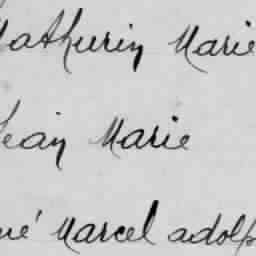 Mathurin Marie
Jean Marie
Marcel adolp